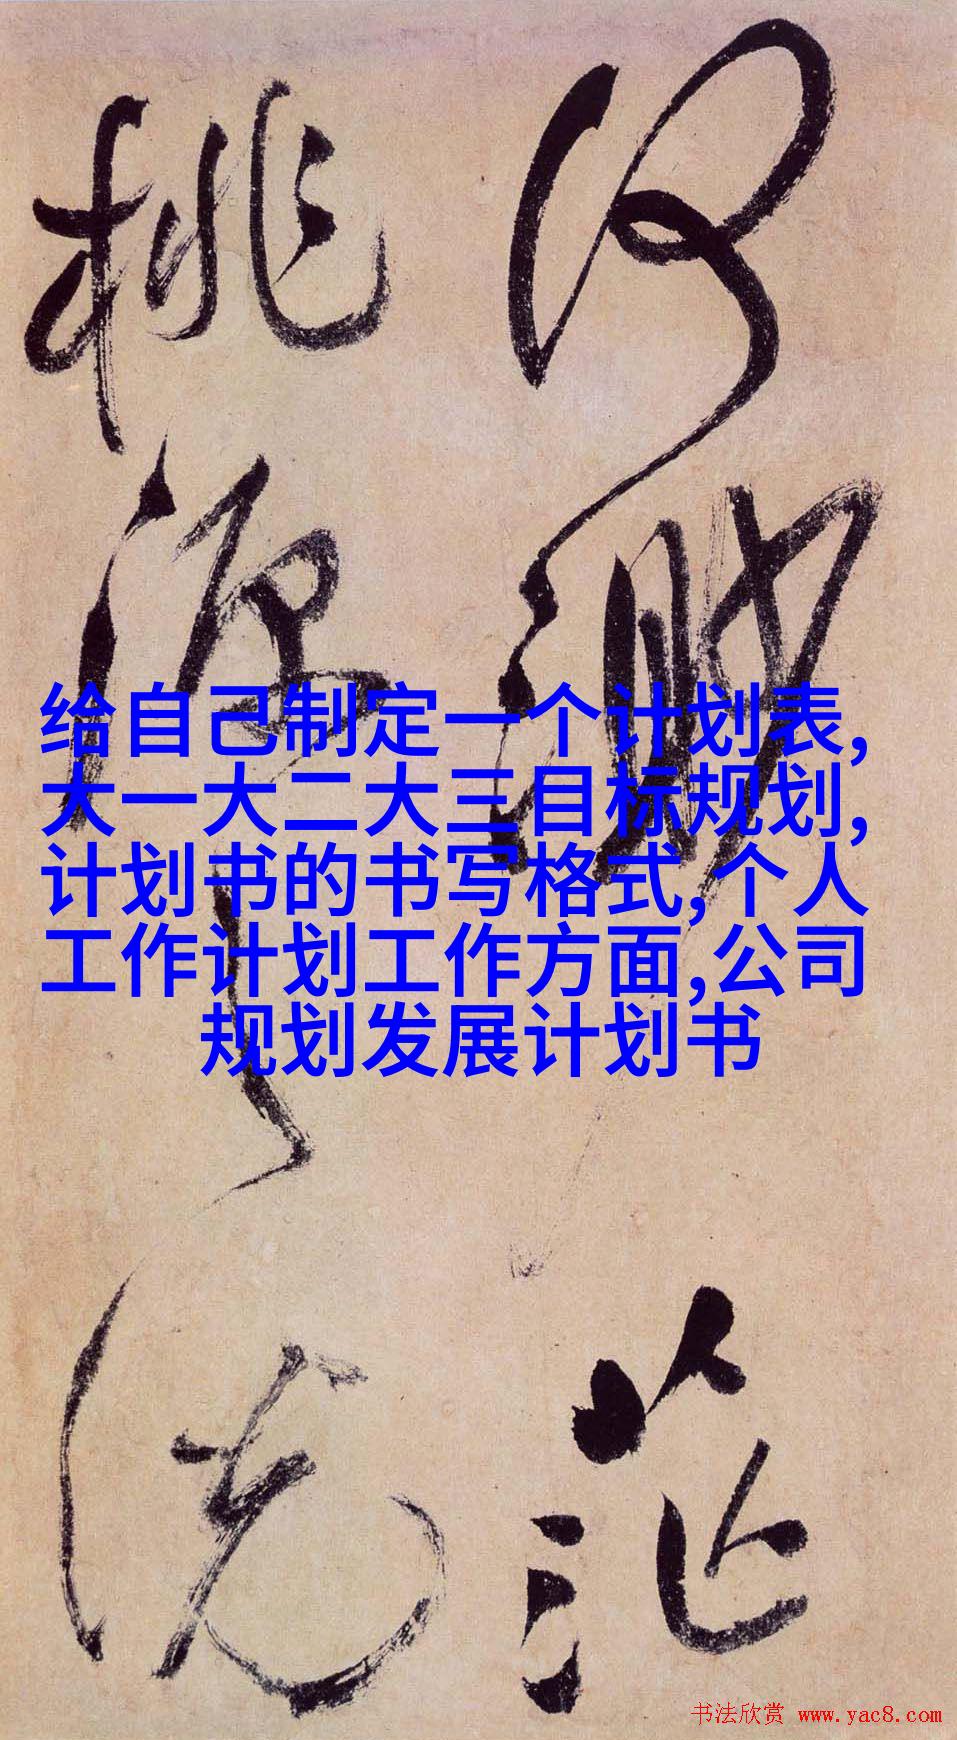 何渺茫
桃源之说
给自己制定一个计划表,
大一大二大三目标规划,
计划书的书写格式,个人
工作计划工作方面,公司
规划发展计划书
书法欣赏 www.yac8.com